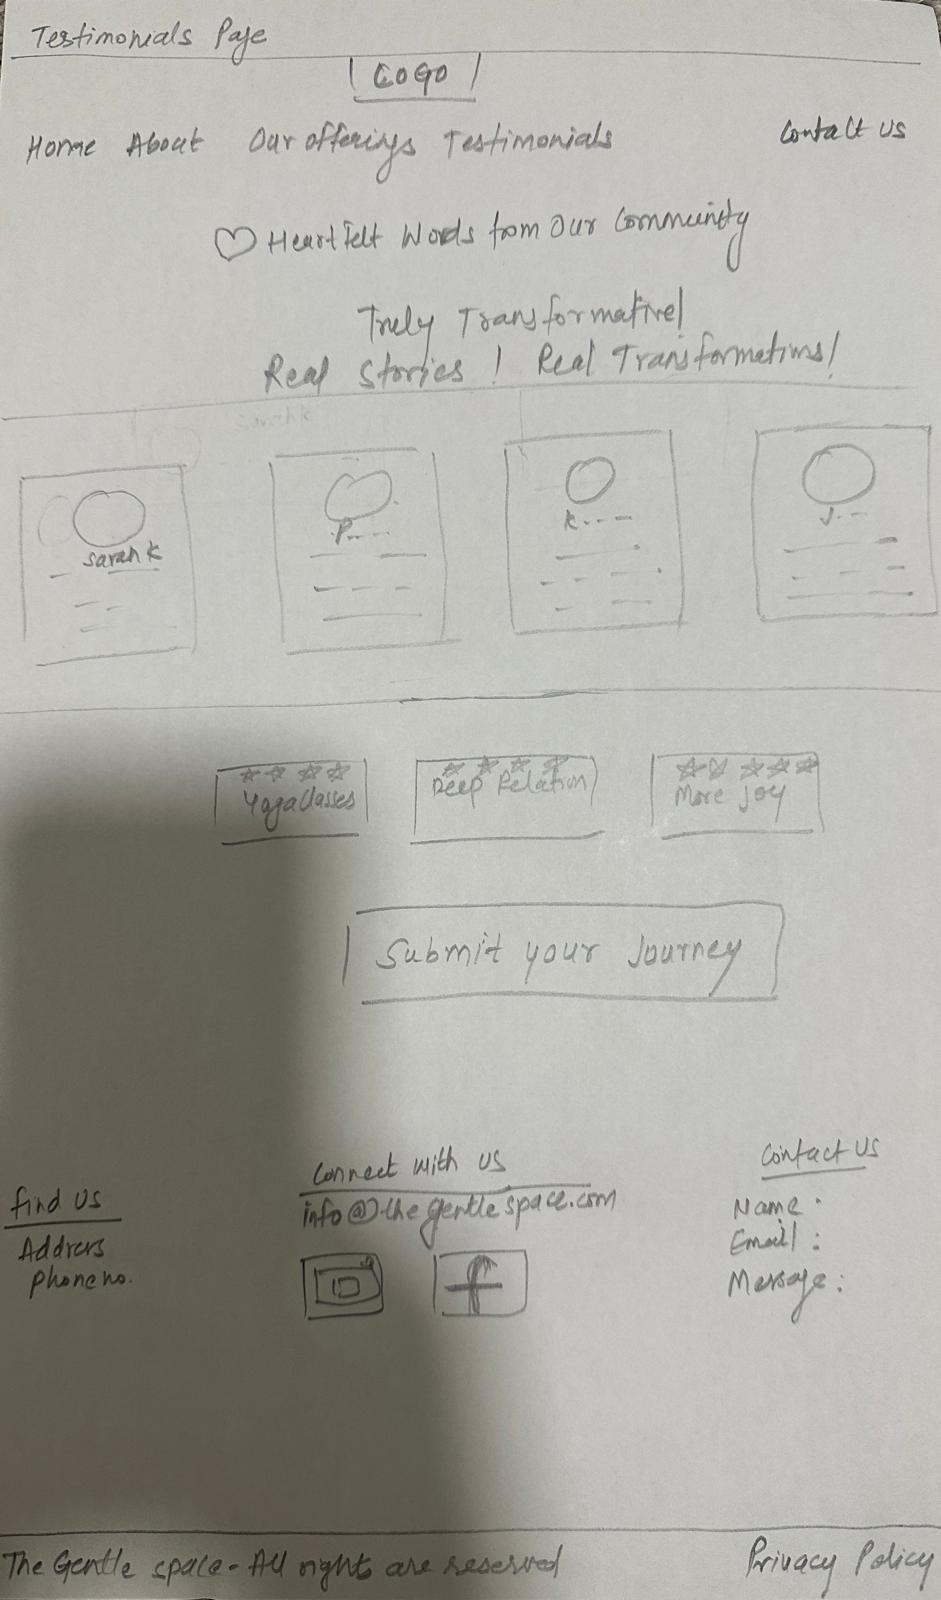 Testimonials Page
LOGO
Home About Our offerings Testimonials Contact US
Heartfelt Words from Our Community
Truly Transformative!
Real Stories ! Real Transformations!
Sarah K
P....
K....
J...
Yoga Classes
Deep Relation
More Joy
Submit your Journey
find us
Address
Phone no.
Connect with us
info@thegentlespace.com
f
Contact US
Name :
Email :
Message :
The Gentle space - All right are reserved
Privacy Policy